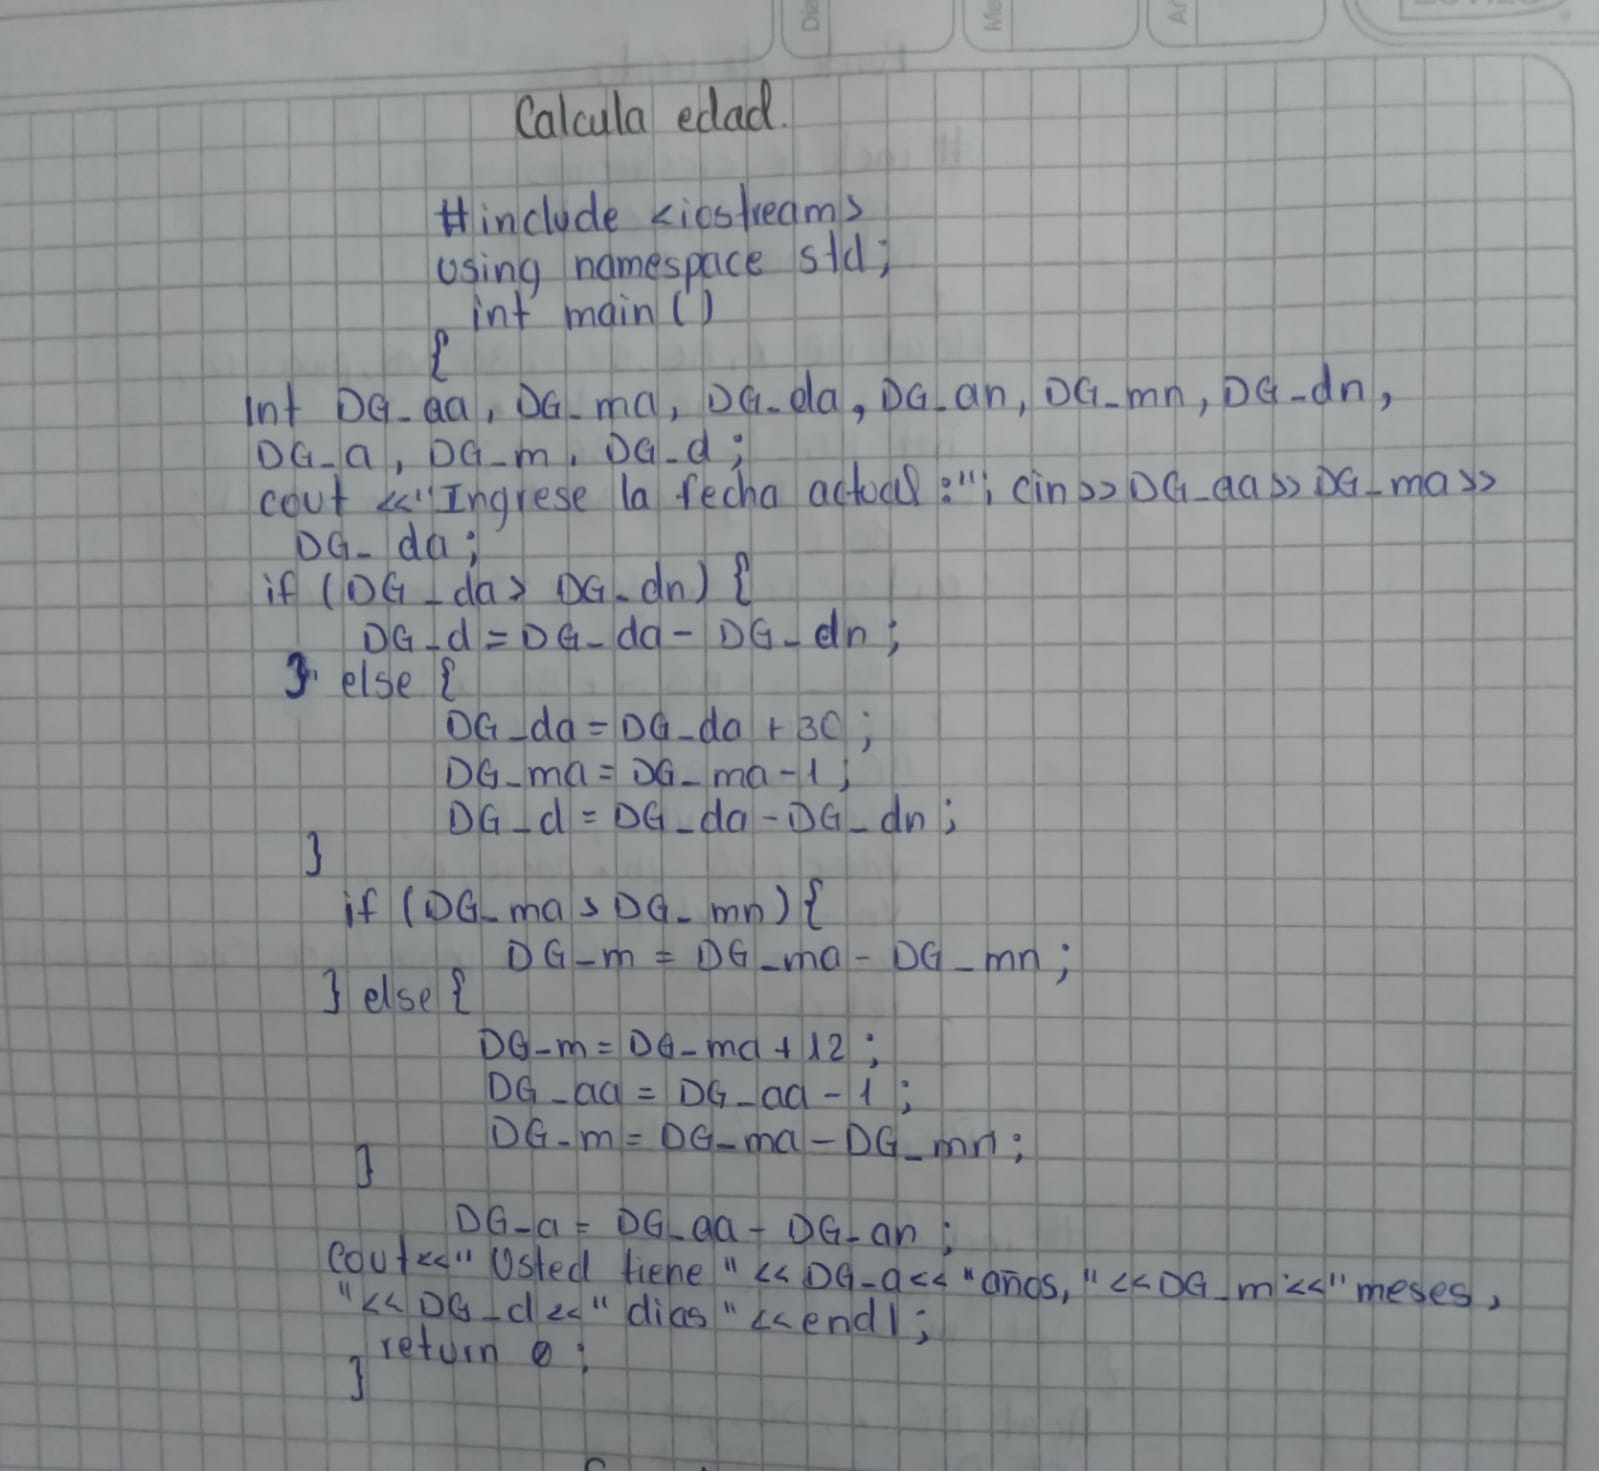 Calcula edad.
#include <iostream>
using namespace std;
int main()
{
int DG_aa, DG_ma, DG_da, DG_an, DG_mn, DG_dn,
DG_a, DG_m, DG_d;
cout <<"Ingrese la fecha actual:"; cin>>DG_aa>>DG_ma>>
DG_da;
if (DG_da> DG_dn) {
DG_d=DG_da- DG_dn;
} else {
DG_da=DG_da +30;
DG_ma=DG_ma-1;
DG_d=DG_da-DG_dn;
}
if (DG_ma> DG_mn) {
DG_m = DG_ma- DG_mn;
} else {
DG_m=DG_ma+12;
DG_aa=DG_aa-1;
DG_m=DG_ma-DG_mn;
}
DG_a= DG_aa- DG_an;
cout<<"Usted tiene"<<DG_a<<"años,"<<DG_m<<"meses,
"<<DG_d<<"dias"<<endl;
return 0;
}